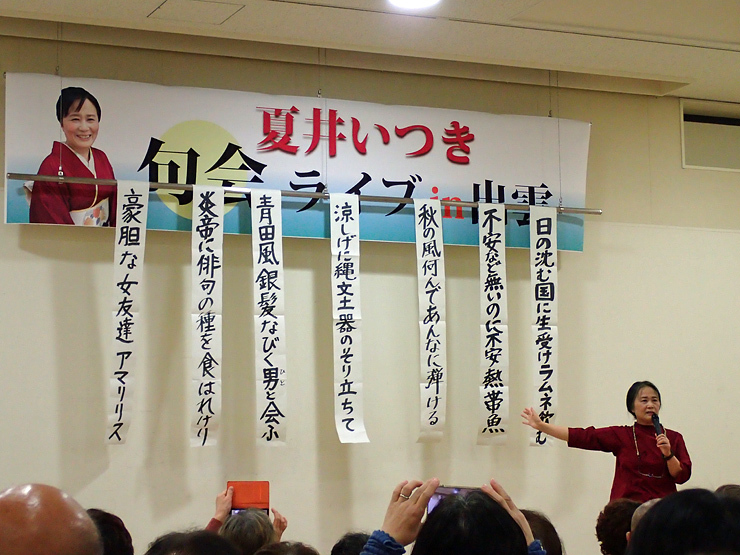 夏井いつき
句会ライブin出雲
日の沈む国に生受けラムネ飲む
不安など無いのに不安熱帯魚
秋の風何んであんなに弾ける
涼しげに縄文土器のそり立ちて
青田風銀髪なびく男と会ふ
ひと
炎帝に俳句の種を食はれけり
豪胆な女友達アマリリス